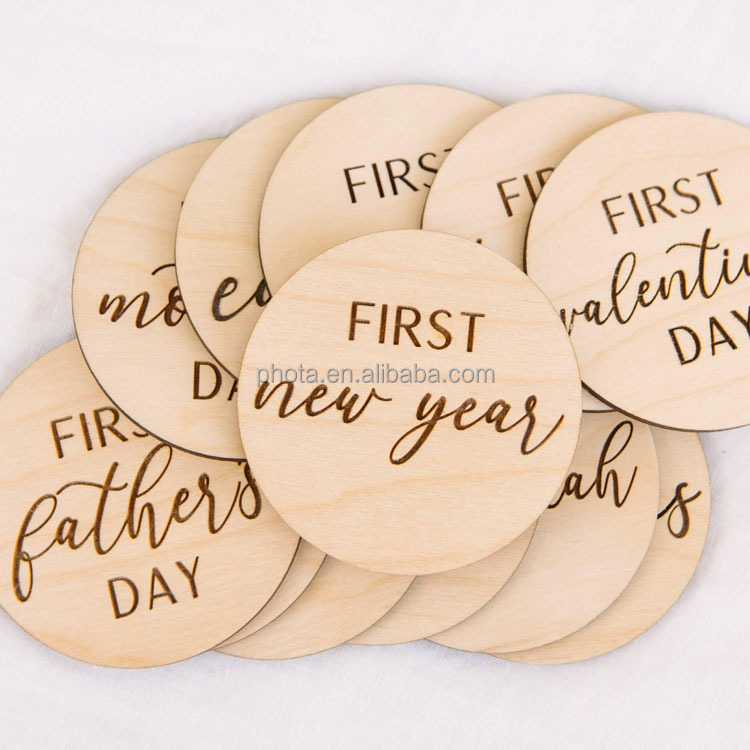 FIRST
FIRST
valentin
DAY
mo
ea
DA
FIRST
new year
phota.en.alibaba.com
FIRS
fathers
DAY
ah
s